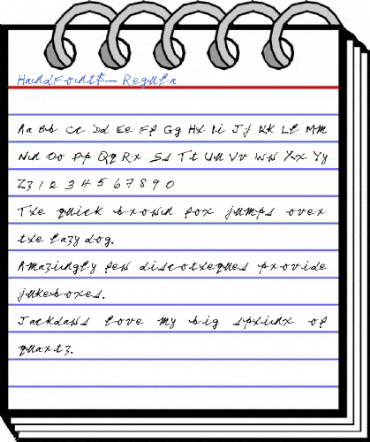 HandFont$— Regula
Aa Bb Cc Dd Ee Ff Gg Hh Ii Jj Kk Ll Mm
Nn Oo Pp Qq Rr Ss Tt Uu Vv Ww Xx Yy
Zz 1 2 3 4 5 6 7 8 9 0
The quick brown fox jumps over
the lazy dog.
Amazingly few discotheques provide
jukeboxes.
Jackdaws love my big sphinx of
quartz.